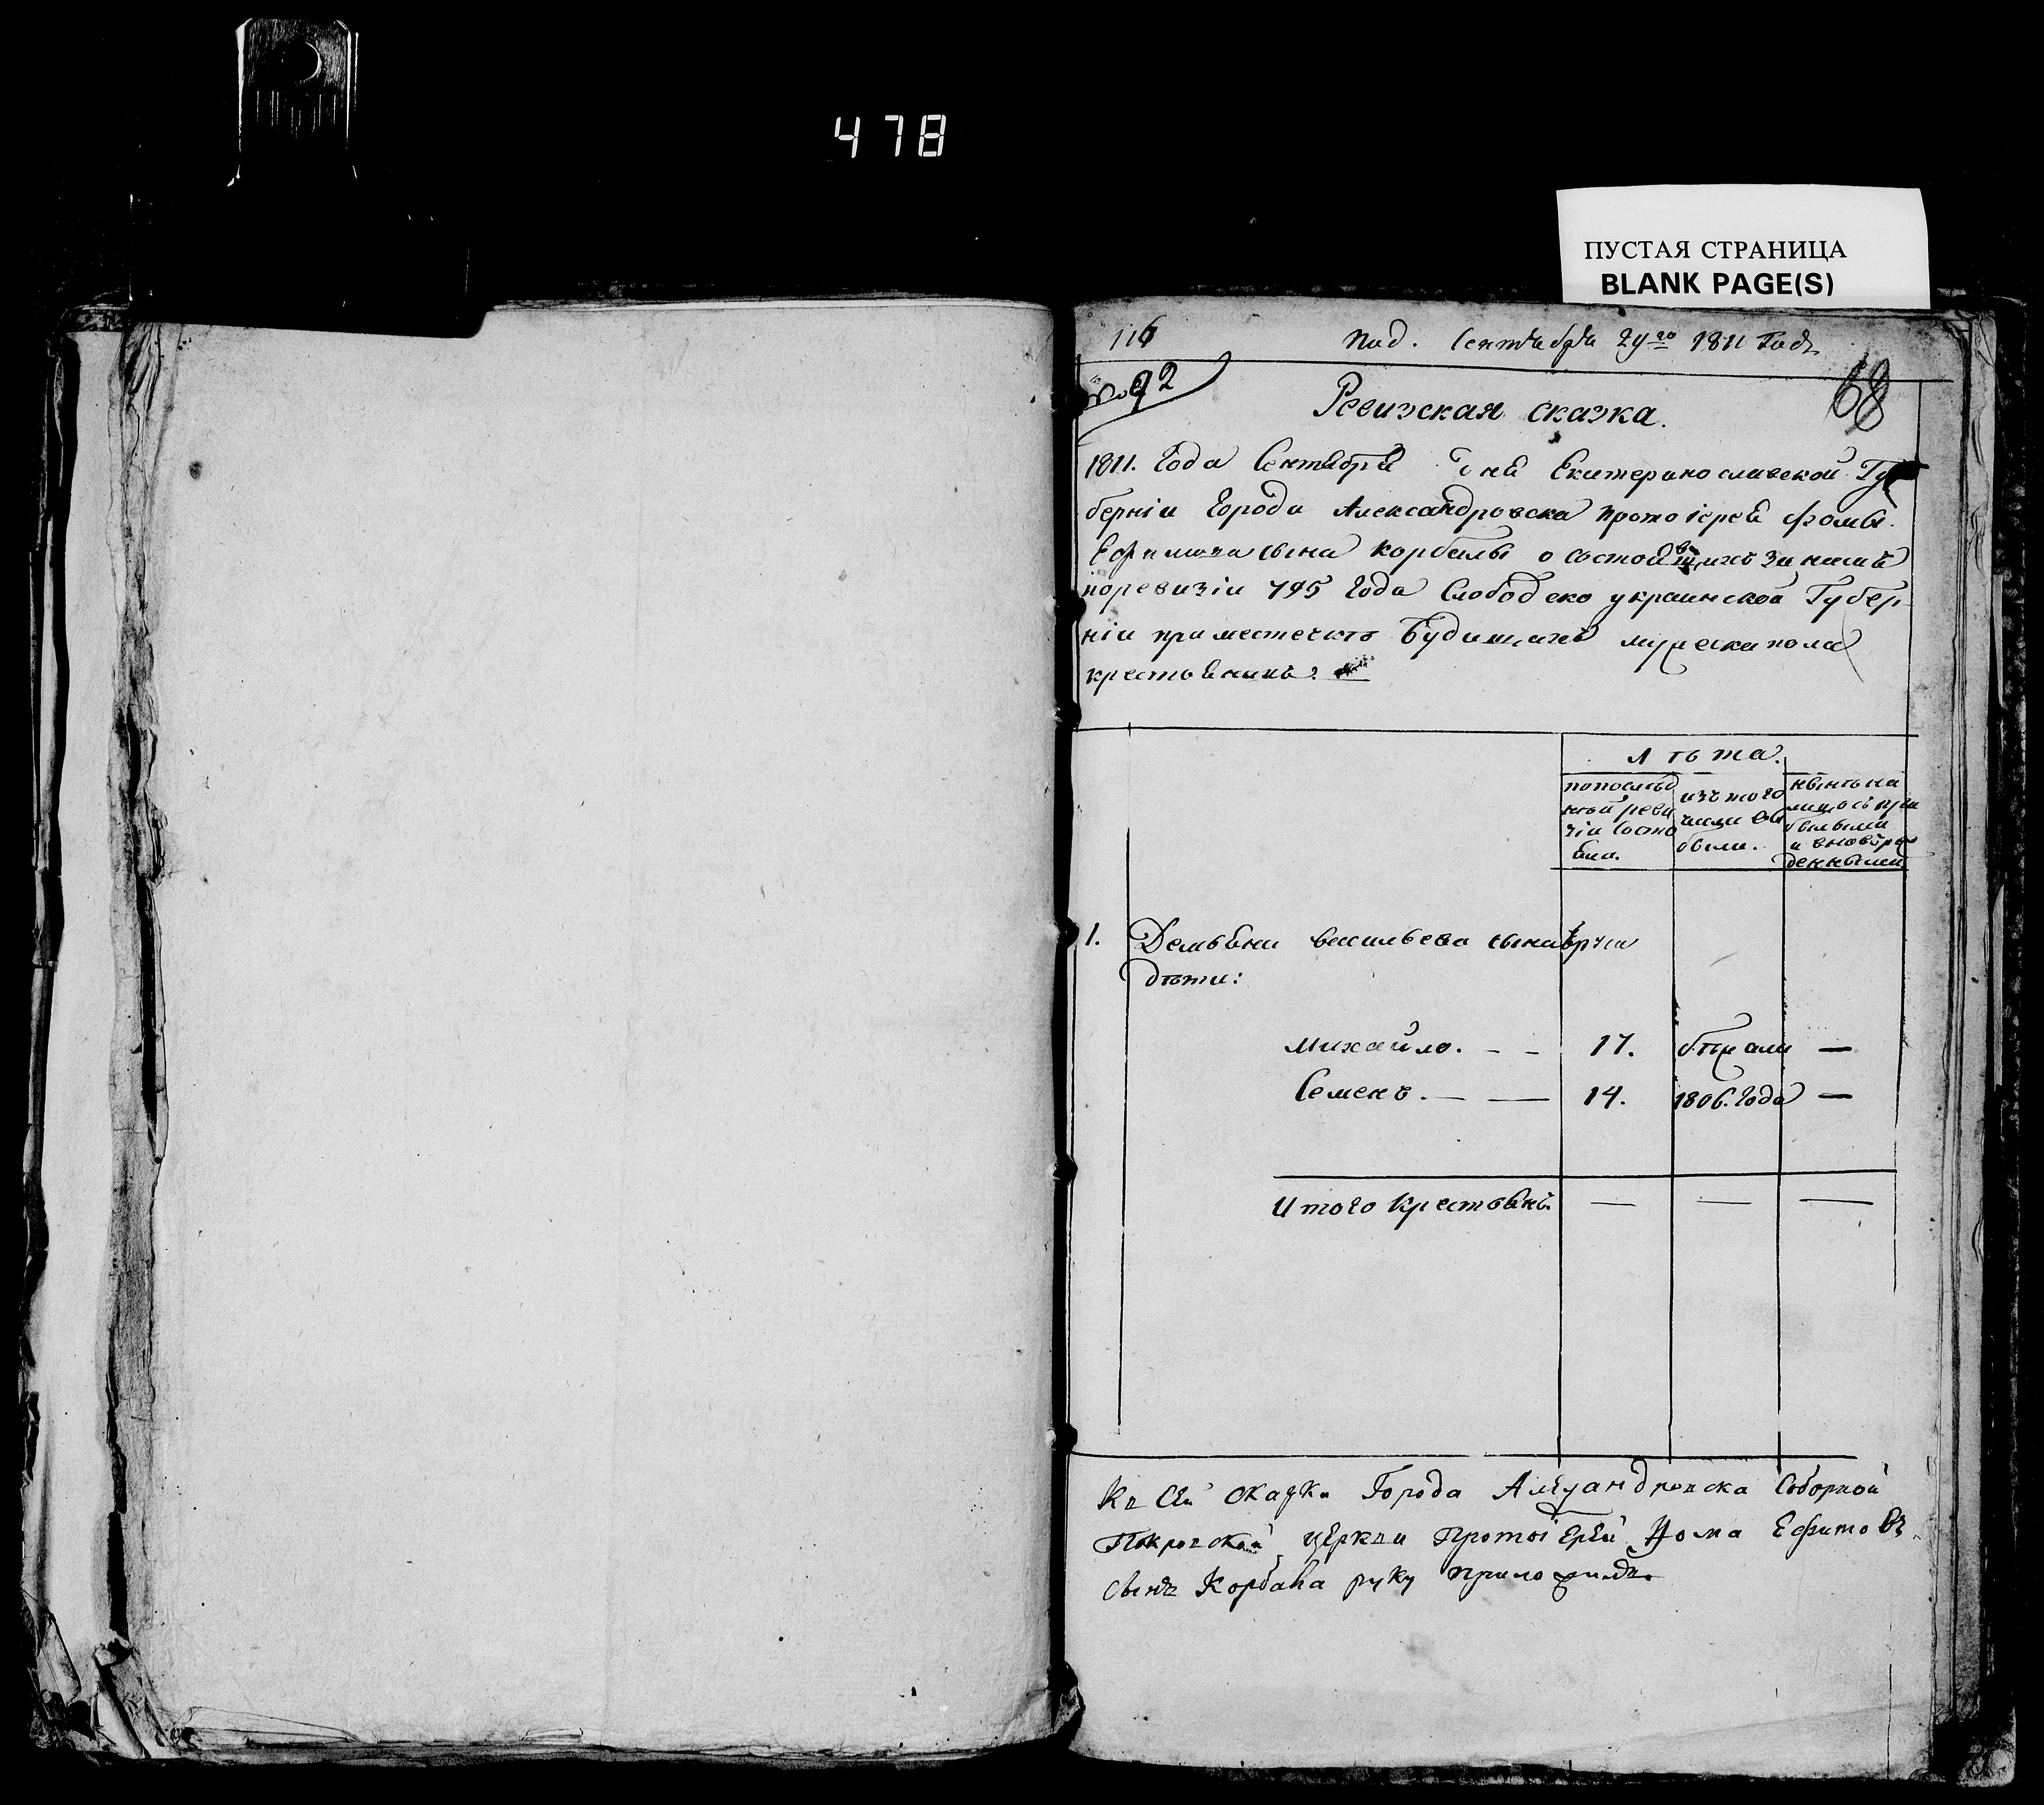 478
ПУСТАЯ СТРАНИЦА
BLANK PAGE(S)
116
Под. Сентября 29го 1811 Года
№ 92
68
Ревизская сказка.
1811. Года Сентября дня Екатеринославской Гу
берніи Города Александровска протоіерея Фомы
Ефимова сына Корбалы о состоявшихъ за нимъ
поревизіи 795 года Слободско украинской Губер
ніи при местечкѣ Будищахъ мужеска пола
крестьянахъ:
Лѣта.
попослѣд
ней реви
зіи состо
яло.
изъ того
числа вы
было.
нынѣ на
лицо съ при
былыми
и вновь рож
денными
1. Демьяна васильева сына
дѣти:
Михайло. 17. бѣжали —
Семенъ. 14. 1806. Года —
Итого Крестьянъ. — — —
Къ Сей Сказки Города Александровска Соборной
Покровской церкви Протоіерей Фома Ефимовъ
Сынъ Корбала руку приложилъ